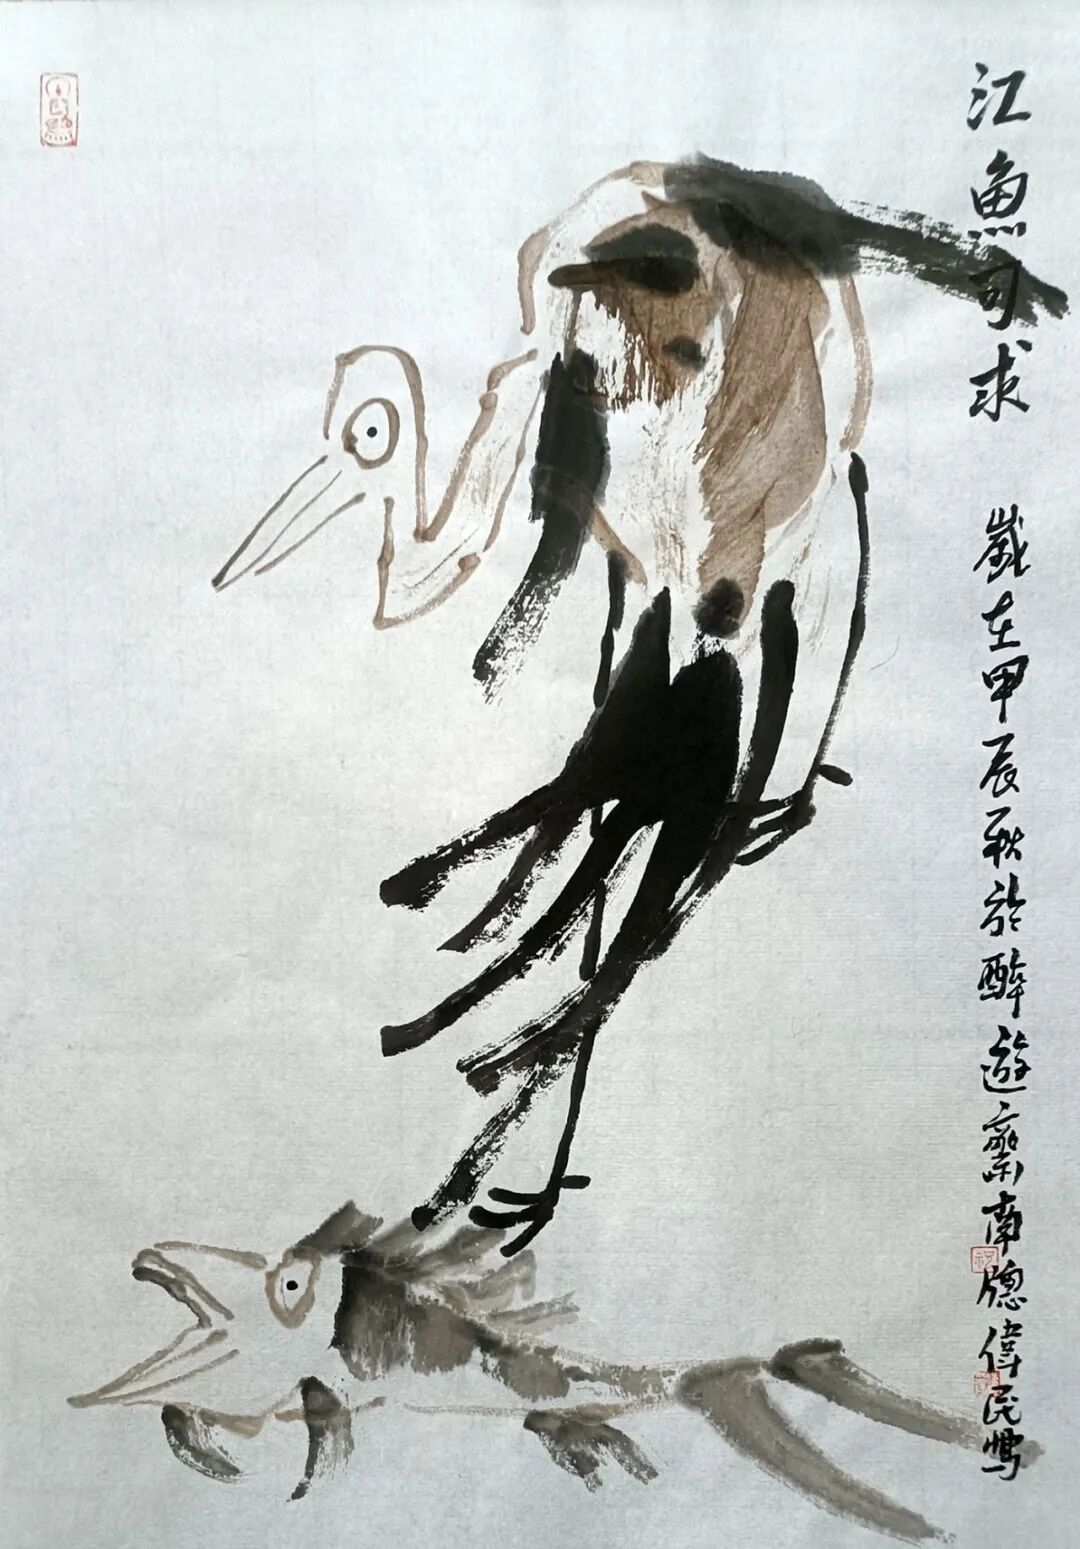 江魚可求
歲在甲辰秋於醉遊齋南牕偉民寫
祝